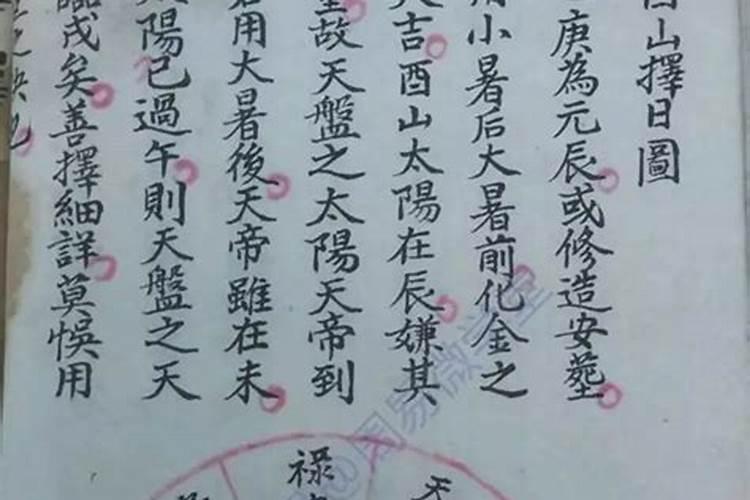 酉山擇日圖
庚為元辰或修造安葬
小暑后大暑前化金之
吉酉山太陽在辰嫌其
故天盤之太陽天帝到
用大暑後天帝雖在未
陽已過午則天盤之天
臨戌矣善擇細詳莫悞用
之
祿
天